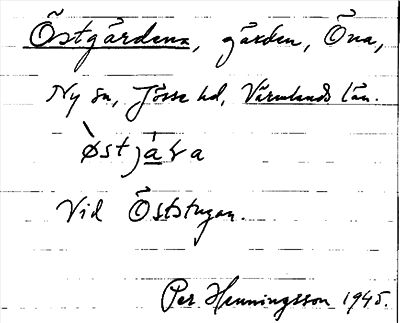 Östgårdena, gården, Öna,
Ny sn, Jösse hd, Värmlands län.
Vid Öststugan.
Per Henningsson 1945.